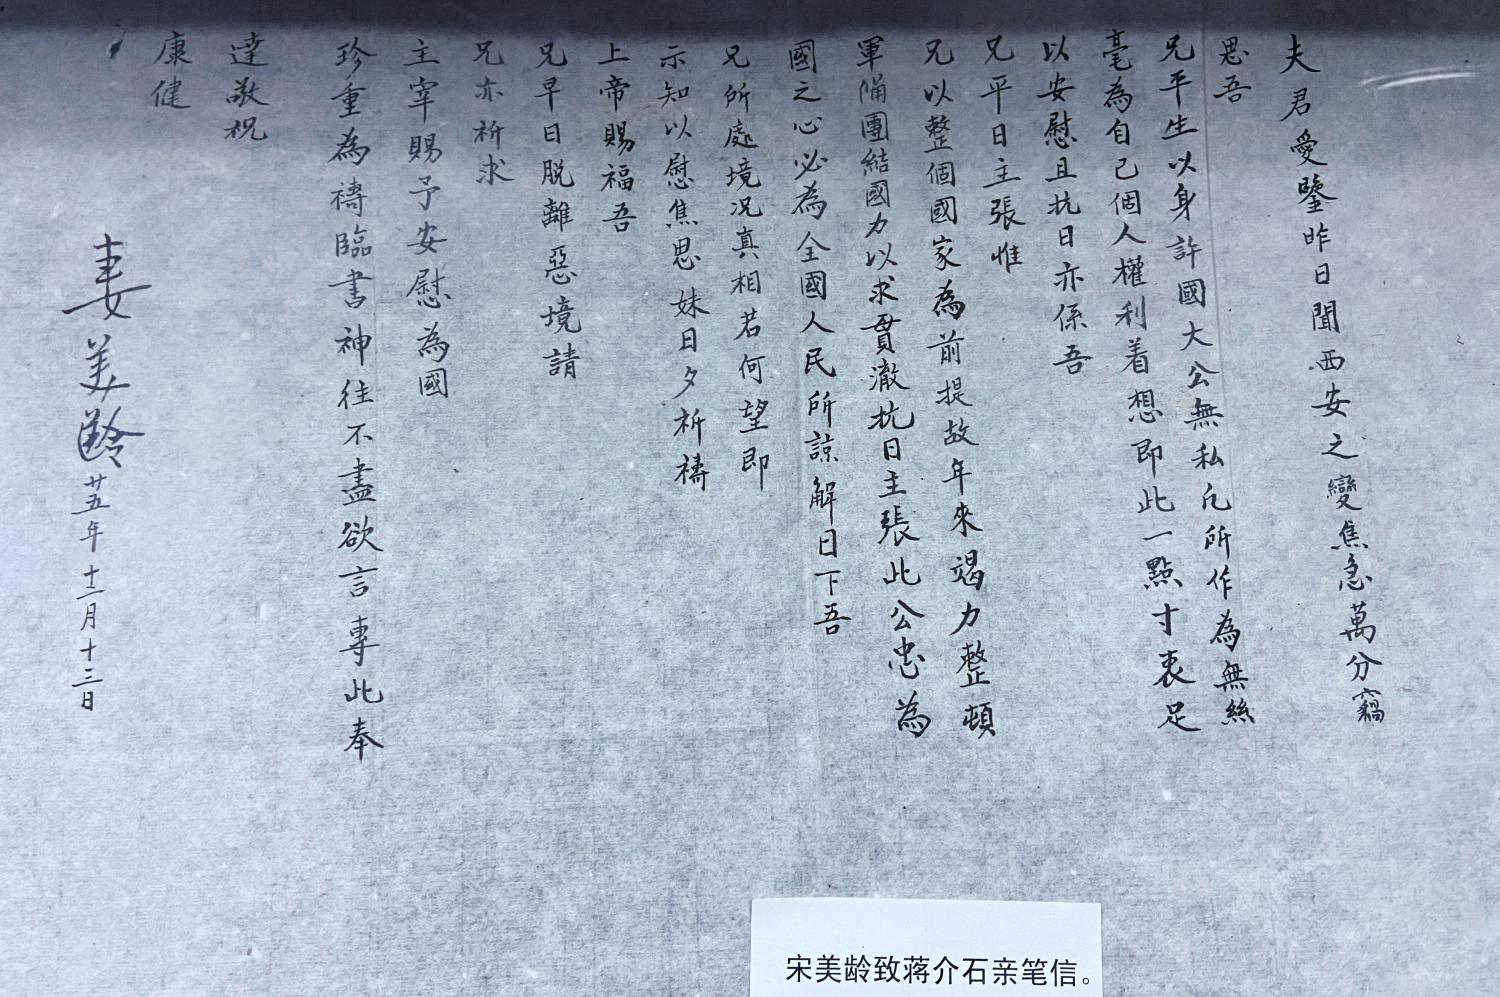 夫君愛鑒昨日聞西安之變焦急萬分竊
思吾
兄平生以身許國大公無私凡所作為無絲
毫為自己個人權利着想即此一點寸衷足
以安慰且抗日亦係吾
兄平日主張惟
兄以整個國家為前提故年來竭力整頓
軍備團結國力以求貫澈抗日主張此公忠為
國之心必為全國人民所諒解日下吾
兄所處境況真相若何望即
示知以慰焦思妹日夕祈禱
上帝賜福吾
兄早日脫離惡境請
兄亦祈求
主宰賜予安慰為國
珍重為禱臨書神往不盡欲言專此奉
達敬祝
康健
妻美齡廿五年十二月十三日
宋美龄致蒋介石亲笔信。